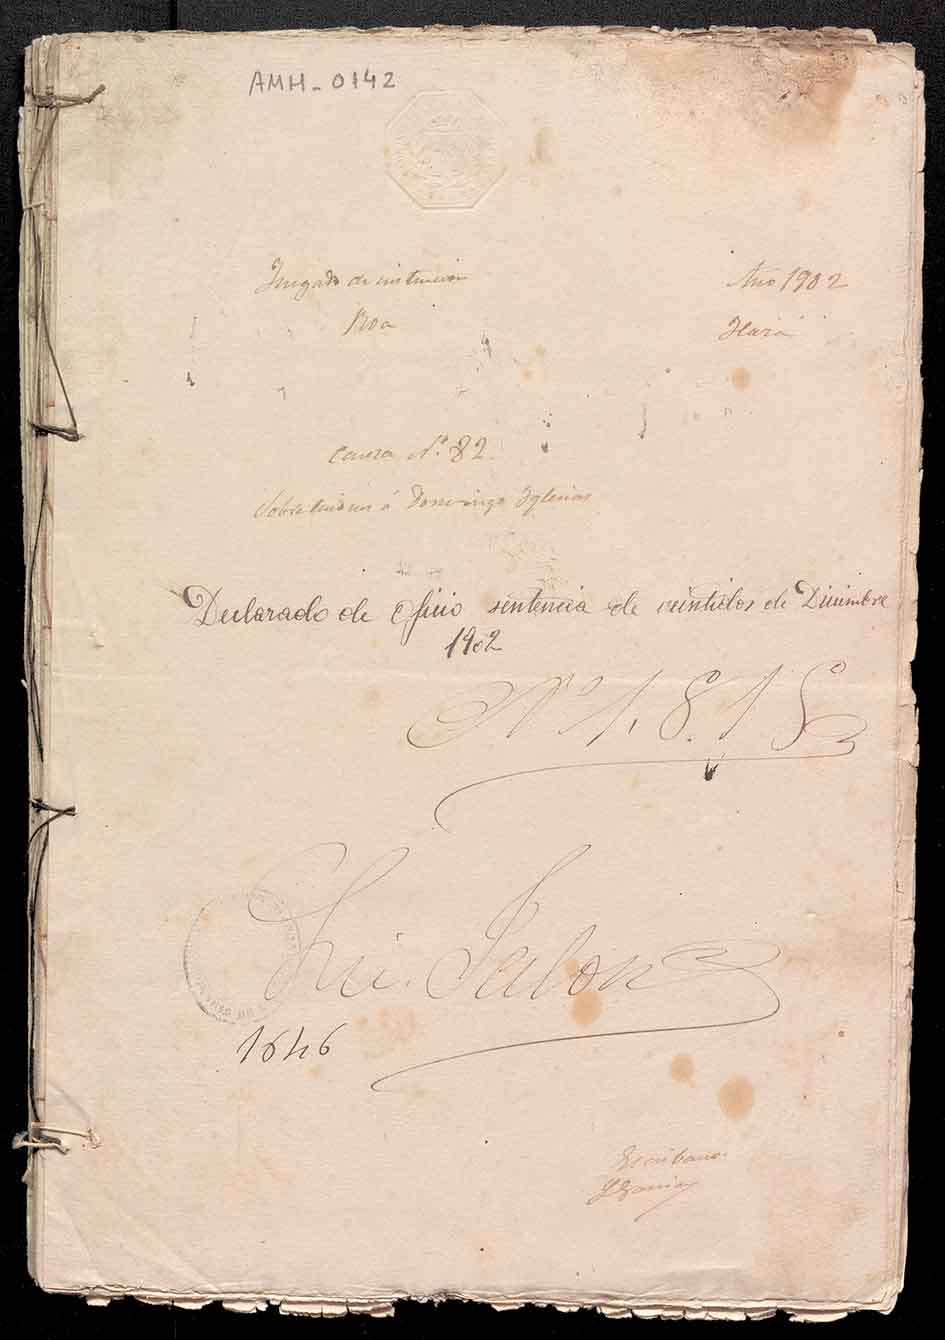 AMH-0142
Juzgado de instrucion
Año 1902
Roa
Haza
Causa Nº 82
Sobre lesiones á Domingo Yglesias
Declarado de oficio sentencia de veintidos de Diciembre
1902
Nº 1.818
1646
Escribano